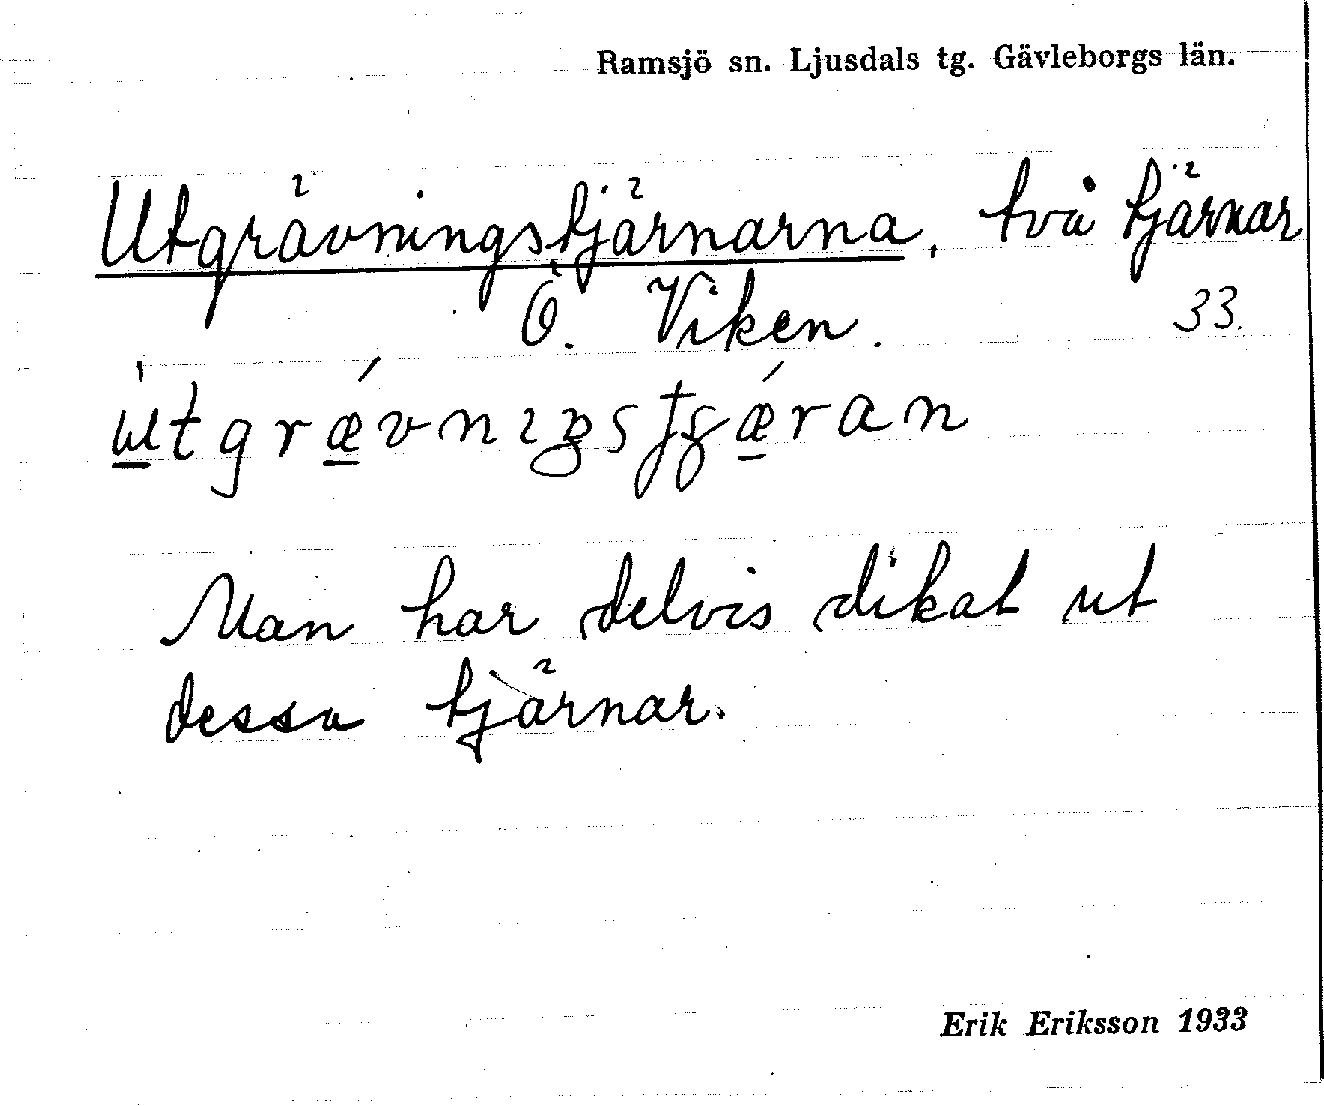 Ramsjö sn. Ljusdals tg. Gävleborgs län.
Utgrävningstjärnarna, två tjärnar
Ö. Viken. 33.
Man har delvis dikat ut
dessa tjärnar.
Erik Eriksson 1933